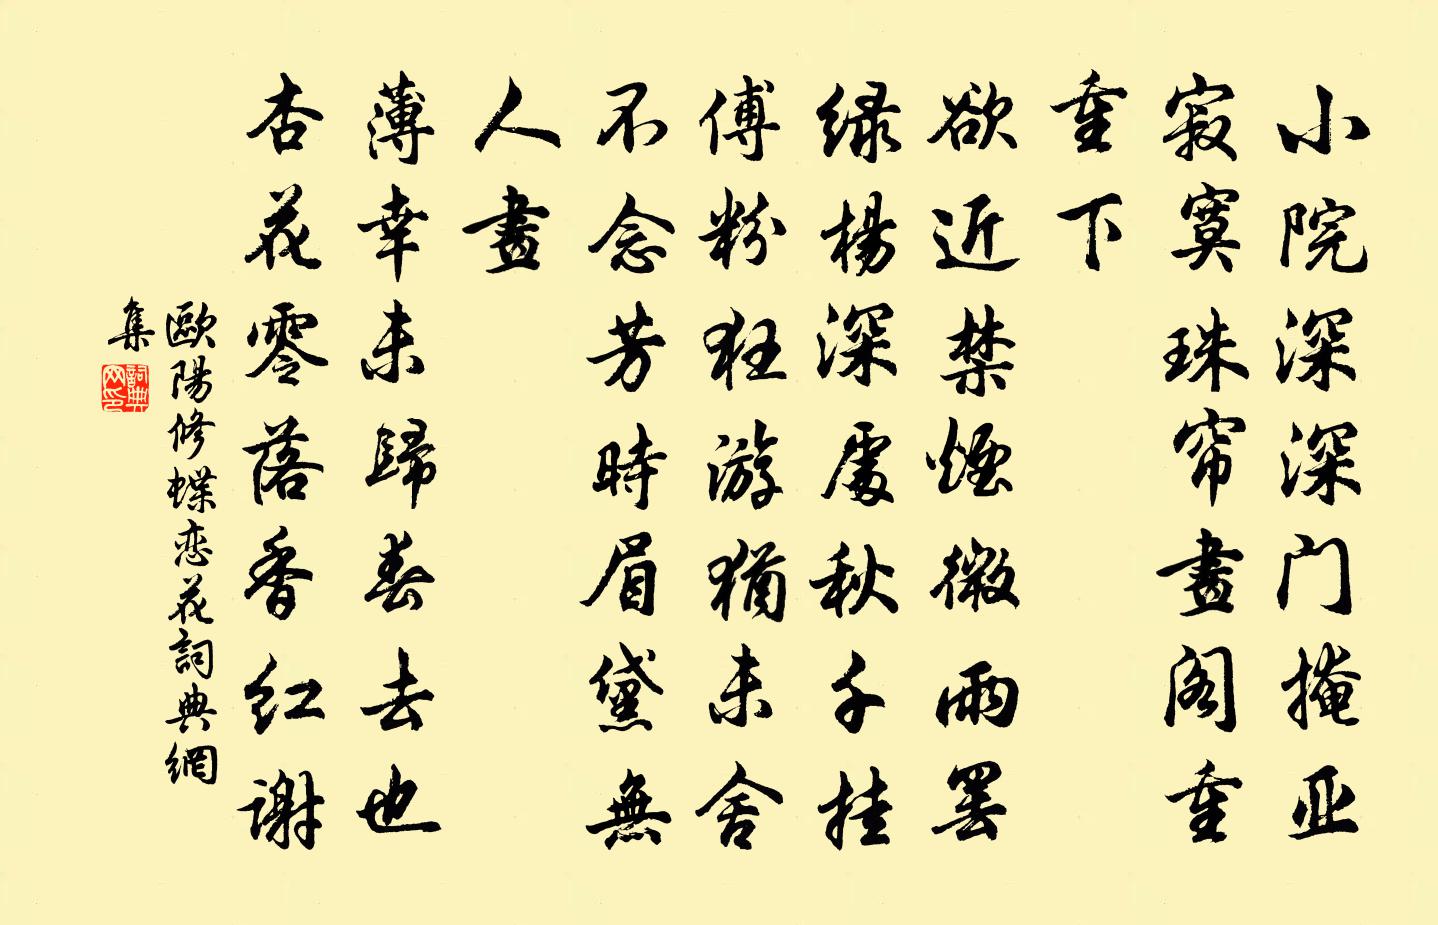 小院深深门掩亚
寂寞珠帘畫阁重
重下
欲近禁煙微雨罢
绿楊深處秋千挂
傅粉狂游猶未舍
不念芳時眉黛無
人畫
薄幸未歸春去也
杏花零落香红谢
歐陽修蝶恋花詞典網
集
詞典
网印